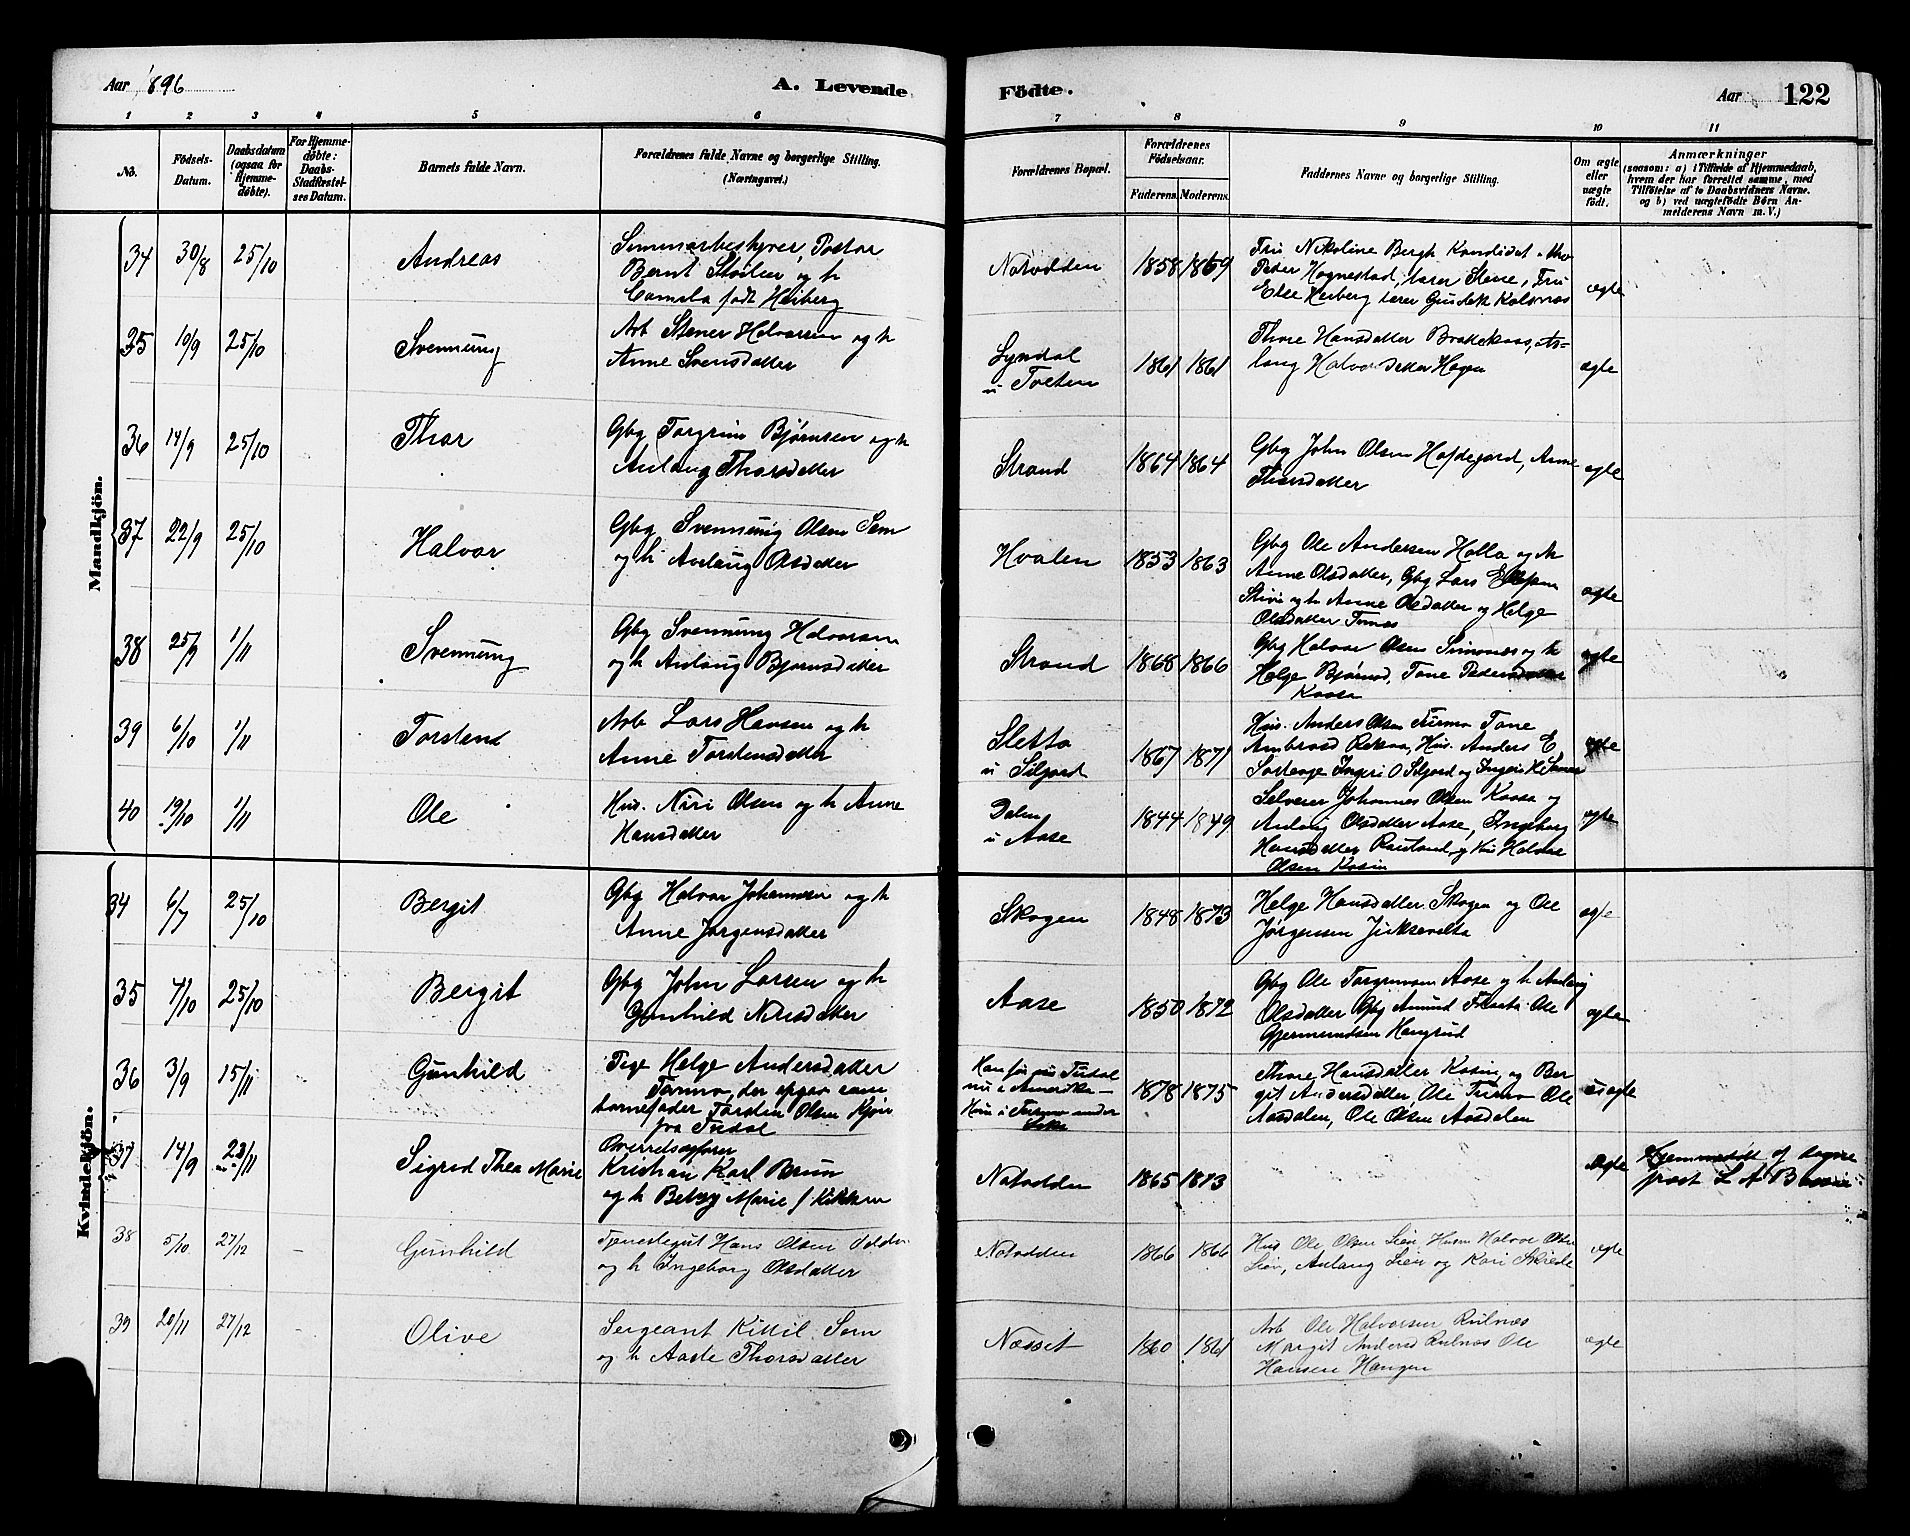 Aar 1896
A. Levende Födte.
Aar 122
1 2 3 4 5 6 7 8 9 10 11
No.
Födsels-Datum.
Daabsdatum (ogsaa for Hjemmedöbte).
For Hjemmedöbte: Daabs-Stadfæstelses Datum.
Barnets fulde Navn.
Forældrenes fulde Navne og borgerlige Stilling. (Næringsvei.)
Forældrenes Bopæl.
Forældrenes Födselsaar.
Faderens. Moderens.
Faddernes Navne og borgerlige Stilling.
Om ægte eller uægte födt.
Anmærkninger
(saasom: a) i Tilfælde af Hjemmedaab,
hvem der har forrettet samme, med
Tilföielse af to Daabsvidners Navne.
og b) ved uægtefödte Börn Anmelderens Navn m. V.)
Mandkjön.
34 30/8 25/10 Andreas
Bernt Støilen og h
Camela født Heiberg
Notodden 1858 1869
Fru Nikoline Bergh Kandidat
Peder Hognestad, lærer Stene, Fru
Else Heiberg lærer Gudek Kolsnæs
ægte
35 10/9 25/10 Svennung
Arb Stener Halvorsen og h
Anne Svensdatter
Lyndal
u Tveten
1861 1861
Thone Hansdatter Brattekaas, As-
laug Halvorsdatter Hagen
ægte
36 14/9 25/10 Thor
Gbg Torgrim Bjørnsen og h
Aslaug Thorsdatter
Strand 1864 1864
Gbg John Olsen Hafdegard, Anne
Thorsdatter
ægte
37 22/9 25/10 Halvor
Gbg Svennung Olsen Sem
og h Aslaug Olsdatter
Hvalen 1853 1863
Gbg Ole Andersen Holla og h
Anne Olsdatter, Gbg Lars
og h Anne Olsdatter og Helge
Olsdatter
ægte
38 25/9 1/11 Svennung
Gbg Svennung Halvorsen
og h Aslaug Bjørnsdatter
Strand 1868 1866
Gbg Halvor Olsen Simonæs og h
Helge Bjørnsd, Tone Pedersdatter
Kaasa
ægte
39 6/10 1/11 Torstend
Arb Lars Hansen og h
Anne Torstensdatter
Sletta
u Siljord
1867 1871
Hus. Anders Olsen Tinmo Tone
Ambrosd Reksaa, Hus. Anders E
Ingeri O Siljord og Ingeri H
ægte
40 19/10 1/11 Ole
Hus. Niri Olsen og h Anne
Hansdatter
Dalen
u Aase
1844 1849
Selveier Johannes Olsen Kaasa og
Aslaug Olsdatter Aase, Ingeborg
Hansdatter Rauland, og Hus Halvor
Olsen Kosin
ægte
Kvindekjön.
34 6/7 25/10 Bergit
Gbg Halvor Johannesen og h
Anne Jørgensdatter
Skogen 1848 1873
Helge Hansdatter Skogen og Ole
Jørgensen
ægte
35 7/10 25/10 Bergit
Gbg John Larsen og h
Gunhild Nirisdatter
Aase 1850 1872
Gbg Ole Torgrimsen Aase og h Aslaug
Olsdatter Gbg Amund Ole
Gjermundsen Haugrud
ægte
36 3/9 15/11 Gunhild
Pige Helge Andersdatter
Tormo, der opgav som
barnefader Torsten Olsen
fra Tudal
Han før Tudal
nu i Amerika –
Hun i Tinmo under
1878 1875
Thone Hansdatter Kosin, og Ber
git Andersdatter, Ole Tinmo Ole
Aasdalen, Ole Olsen Aasdalen
uægte
37 14/9 23/11 Sigred Thea Marie
Overretssagfører
Kristian Karl Bruun
og h Betsy Marie f
Notodden 1865 1873
ægte
Hjemmedøbt af
38 5/10 27/12 – Gunhild
Tjenestegut Hans Olsen
og h Ingeborg Olsdatter
Notodden 1866 1866
Hus Ole Olsen Lien Husm Halvor Olsen
Lien, Aslaug Lien og Kari
ægte
39 20/11 27/12 – Olive
Sergeant Kittil Sem
og h Aaste Thorsdatter
Næsset 1860 1861
Arb Ole Halvorsen Rulnæs
Margit Andersd Rulnæs Ole
Hansen Haugen
ægte